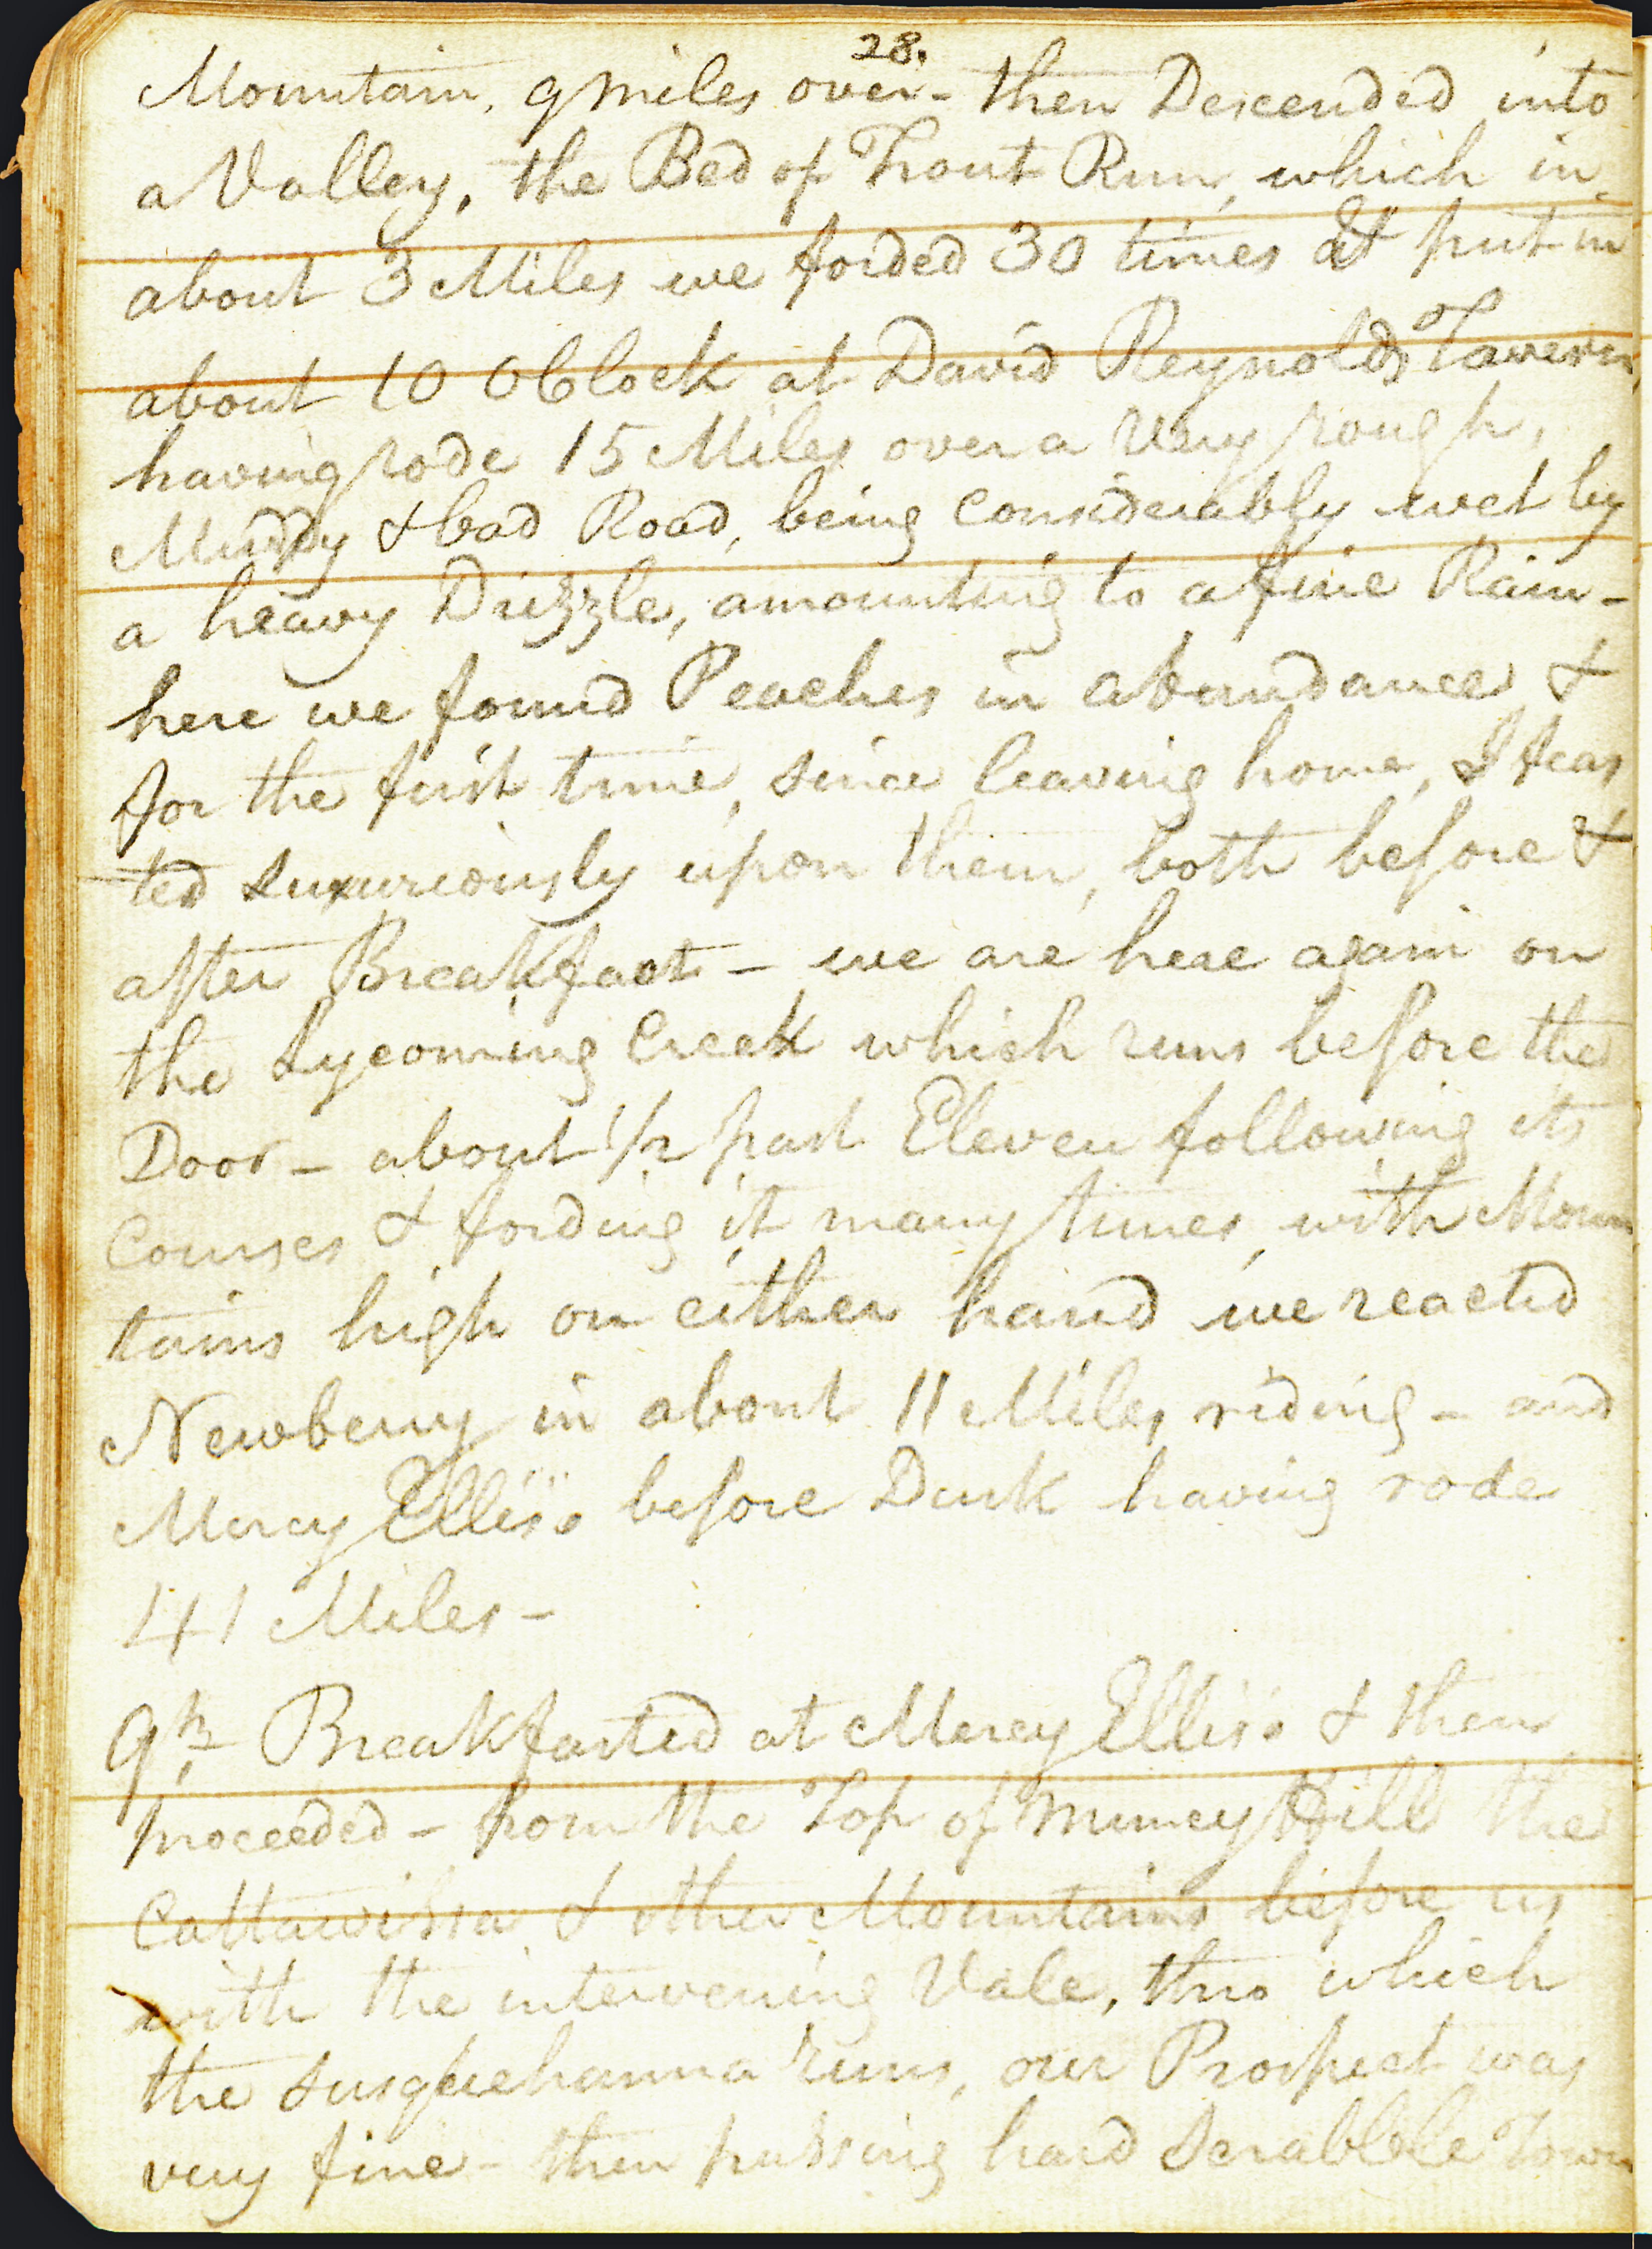 28.
Mountain, 9 miles over - then Descended into
a Valley, the Bed of Trout Run, which in
about 3 Miles we forded 30 times & put in
about 10 OClock at David Reynolds Tavern,
having rode 15 Miles over a Very rough,
Muddy & bad Road, being considerably wet by
a heavy Drizzle, amounting to a fine Rain -
here we found Peaches in abundance &
for the first time, since leaving home, I feas
ted Luxuriously upon them, both before &
after Breakfast - we are here again on
the Lycoming Creek which runs before the
Door - about 1/2 past Eleven following its
Courses & fording it many times, with Moun
tains high on either hand we reacted
Newberry in about 11 Miles riding - and
Mercy Ellis's before Dusk having rode
41 Miles -
9th Breakfasted at Mercy Ellis's & then
proceeded - from the Top of Muncy Hill the
Cattawissa & other Mountains before us
with the intervening Vale, thro which
the Susquehanna runs, our Prospect was
very fine - then passing hard Scrabble Town